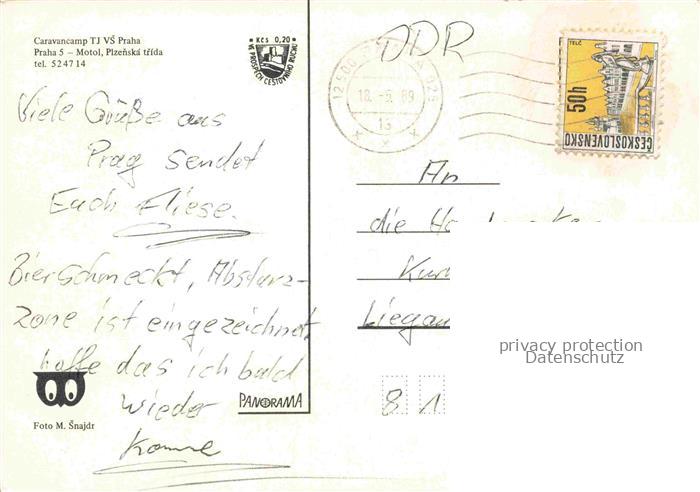 Caravancamp TJ VŠ Praha
Praha 5 – Motol, Plzeňská třída
tel. 524714
Kčs 0,20
VE PROSPĚCH CESTOVNÍHO RUCHU
DDR
18.-5. 89
13
TELČ
50h
ČESKOSLOVENSKO
Viele Grüße aus
Prag sendet
Euch Fliese.
Bier schmeckt, Absturz-
zone ist eingezeichnet
hoffe das ich bald
wieder
komme
An
die
Liegau
81
privacy protection
Datenschutz
PANORAMA
Foto M. Šnajdr